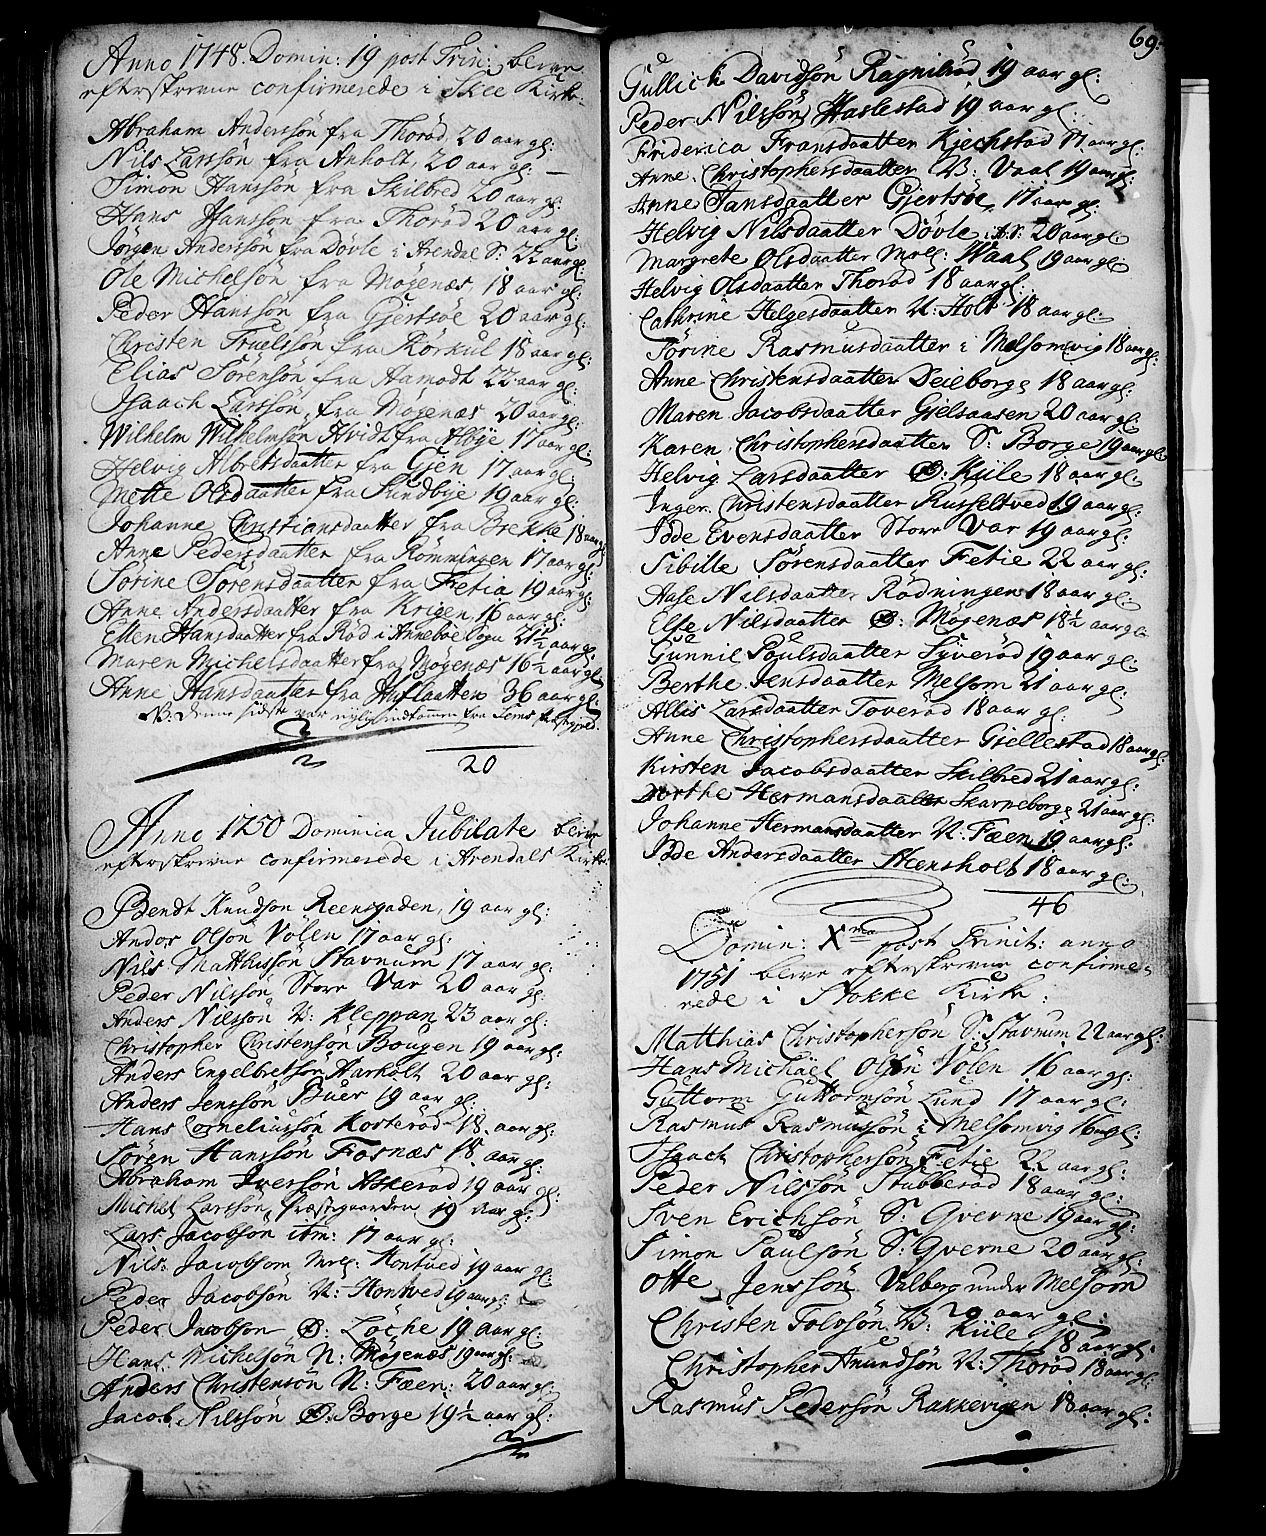 Anno 1748. Domin: 19 post Trin: bleve
efterskrevne confirmerede i Skee Kirke.
Abraham Anderssön fra Thoröd 20 aar gl:
Nils Larssön fra Anholt 20 aar gl:
Simon Hanssön fra Skilbred 20 aar gl:
Hans Hanssön fra Thoröd 20 aar gl:
Jörgen Anderssön fra Dövle i Arendal S: 22 aar gl:
Ole Michelsön fra Mögenæs 18 aar gl:
Peder Hanssön fra Gjertsöe 20 aar gl:
Christen Truelssön fra Rörkul 18 aar gl:
Elias Sörensön fra Aamodt 22 aar gl:
Isaach Larssön, fra Mögenæs 20 aar gl:
Wilhelm Wilhelmsön Hvidt fra Albye 17 aar gl:
Helvig Albretsdaatter fra Gjen 17 aar gl:
Mette Olsdaatter fra Sundbye 19 aar gl:
Johanne Christiansdaatter fra Brekke 18 aar gl:
Anne Pedersdaatter fra Römmingen 17 aar gl:
Sörine Sörensdaatter fra Fretia 19 aar gl:
Anne Andersdaatter fra Krigen 16 aar gl:
Ellen Hansdaatter fra Röd i Anneböe Sogn 21½ aar gl:
Maren Michelsdaatter fra Mögenæs 16½ aar gl:
Anne Hansdaatter fra Huflaatten 36 aar gl:
NB. denne sidste var nylig indkommen fra
20
Anno 1750 Dominica Jubilate bleve
efterskrevne confirmerede i Arendals Kirke.
Bendt Knudsön Reensgaden, 19 aar gl:
Anders Olsön Völen 17 aar gl:
Nils Matthissön Stavnum 17 aar gl:
Peder Nilssön Store Var 20 aar gl:
Anders Nilssön N: Kleppan 23 aar gl:
Christopher Christensön Bougen 19 aar gl:
Anders Engelbretsön Harholt 20 aar gl:
Anders Jenssön Buer 19 aar gl:
Hans Corneliussön Kosteröd 18 aar gl:
Sören Hanssön Fosnæs 18 aar gl:
Abraham Iversön Askeröd 19 aar gl:
Michel Larssön, Præstegaarden 19 aar gl:
Lars Jacobsön itm: 17 aar gl:
Nils Jacobsön Mell: Hontved 19 aar gl:
Peder Jacobsön N: Hontved 19 aar gl:
Peder Jacobsön Ø: Löche 19 aar gl:
Hans Michelsön N: Mögenæs 19 aar gl:
Anders Christensön N: Fæen: 20 aar gl:
Jacob Nilssön Ø: Borge 19½ aar gl:
69.
Gullich Davidsön Ragnilröd 19 aar gl:
Peder Nilssön Haslestad 19 aar gl:
Friderica Fransdaatter Kjechstad 17 aar gl:
Anne Christophersdaatter N: Vaal 19 aar gl:
Anne Jansdaatter Gjertsöe, 17 aar gl:
Helvig Nilsdaatter Dövle i A: S: 20 aar gl:
Margrete Olsdaatter Mell: Waal 19 aar gl:
Helvig Olsdaatter Thoröd 18 aar gl:
Cathrine Helgesdaatter N: Holt 18 aar gl:
Sörine Rasmusdaatter i Melsomvig 18 aar gl:
Anne Christensdaatter Deileborg 18 aar gl:
Maren Jacobsdaatter Gjelsaasen 20 aar gl:
Karen Christophersdaatter S: Borge 19 aar gl:
Helvig Larsdaatter Ø: Kiile 18 aar gl:
Inger Christensdaatter Russeltved 19 aar gl:
Idde Evensdaatter Store Var 19 aar gl:
Sibille Sörensdaatter Fetie 22 aar gl:
Aase Nilsdaatter Rödningen 18 aar gl:
Else Nilsdaatter Ø: Mögenæs 18½ aar gl:
Gunnil Poulsdaatter Tyveröd 19 aar gl:
Berthe Jensdaatter Melsom 21 aar gl:
Allis Larsdaatter Toveröd 18 aar gl:
Anne Christophersdaatter Gjellestad 18 aar gl:
Kirsten Jacobsdaatter Skilbred 21 aar gl:
Dorthe Hermansdaatter Skarpeborg 21 aar gl:
Johanne Hermansdaatter N: Fæen 19 aar gl:
Idde Andersdaatter Steensholt 18 aar gl:
46
Domin: Xma post Trinit: anno
1751 bleve efterskrevne confirme-
rede i Stokke Kirke:
Matthias Christophersön S: Stavnum 22 aar gl:
Hans Michaël Olsön Völen 16 aar gl:
Guttorm Guttormsön Lund 17 aar gl:
Rasmus Rasmussön i Melsomvig 16 aar gl:
Isaach Christophersön Fetie 22 aar gl:
Peder Nilssön Stubberöd 18 aar gl:
Sven Erichsön S: Qverne 19 aar gl:
Simon Paulsön S: Qverne 20 aar gl:
Otte Jenssön Valberg under Melsom
20 aar gl:
Christen Tolvsön N: Kiile 18 aar gl:
Christopher Anundsön N: Thoröd 18 aar gl:
Rasmus Pedersön Rakkevigen 18 aar gl: